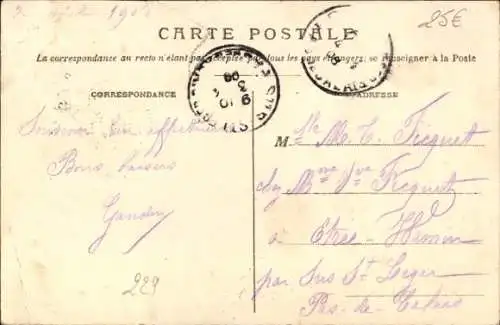 1903
25€
CARTE POSTALE
La correspondance au recto n'étant pas acceptée par tous les pays étrangers, se renseigner à la Poste
CORRESPONDANCE
ADRESSE
Souvenir bien affectueux
Bons baisers
Gandry
229
Mlle M. T. Ficquet
chez Mme Vve Ficquet
à Etrée-Wamin
par Sus St Leger
Pas-de-Calais